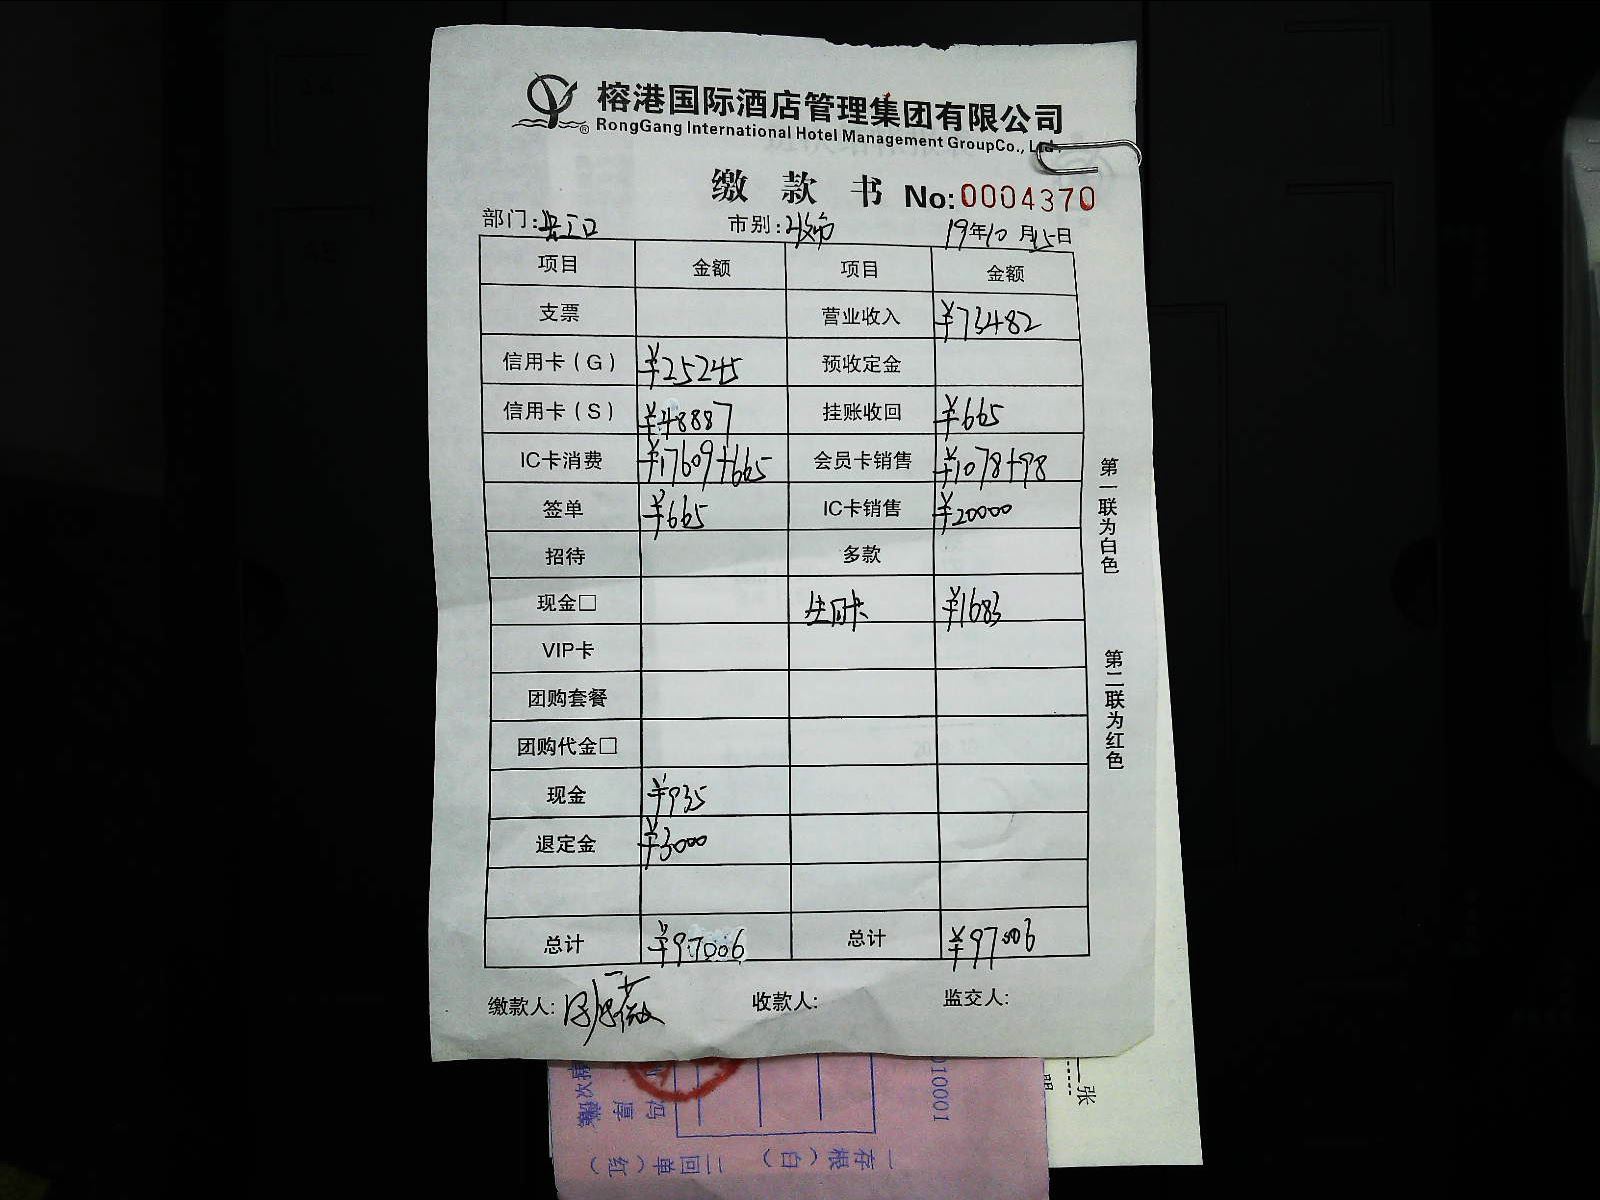 榕港国际酒店管理集团有限公司
RongGang International Hotel Management GroupCo., Ltd.
缴 款 书 No:0004370
部门: 长江口 市别: 19年10月15日
项目 金额 项目 金额
支票 营业收入 ¥73482
信用卡(G) ¥25245 预收定金
信用卡(S) ¥48887 挂账收回 ¥665
IC卡消费 ¥17609+665 会员卡销售 ¥1078+98
签单 ¥665 IC卡销售 ¥20000
招待 多款
现金□ ¥1683
VIP卡
团购套餐
团购代金□
现金 ¥935
退定金 ¥3000
总计 ¥97006 总计 ¥97006
缴款人: 收款人: 监交人:
第一联为白色
第二联为红色
张
010001
一存根(白) 二回单(红)